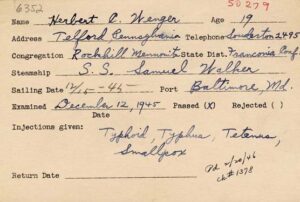 6352
50279
Name Herbert C. Wenger Age 19
Address Telford Pennsylvania Telephone Souderton 2495
Congregation Rockhill Mennonite State Dist. Franconia Conf.
Steamship S.S. Samuel Walker
Sailing Date 12/15-45 Port Baltimore, Md.
Examined December 12, 1945 Passed (X) Rejected ( )
Date
Injections given:
Typhoid, Typhus, Tetanus,
Smallpox
Return Date
Pd. 2/20/46
ck# 1378